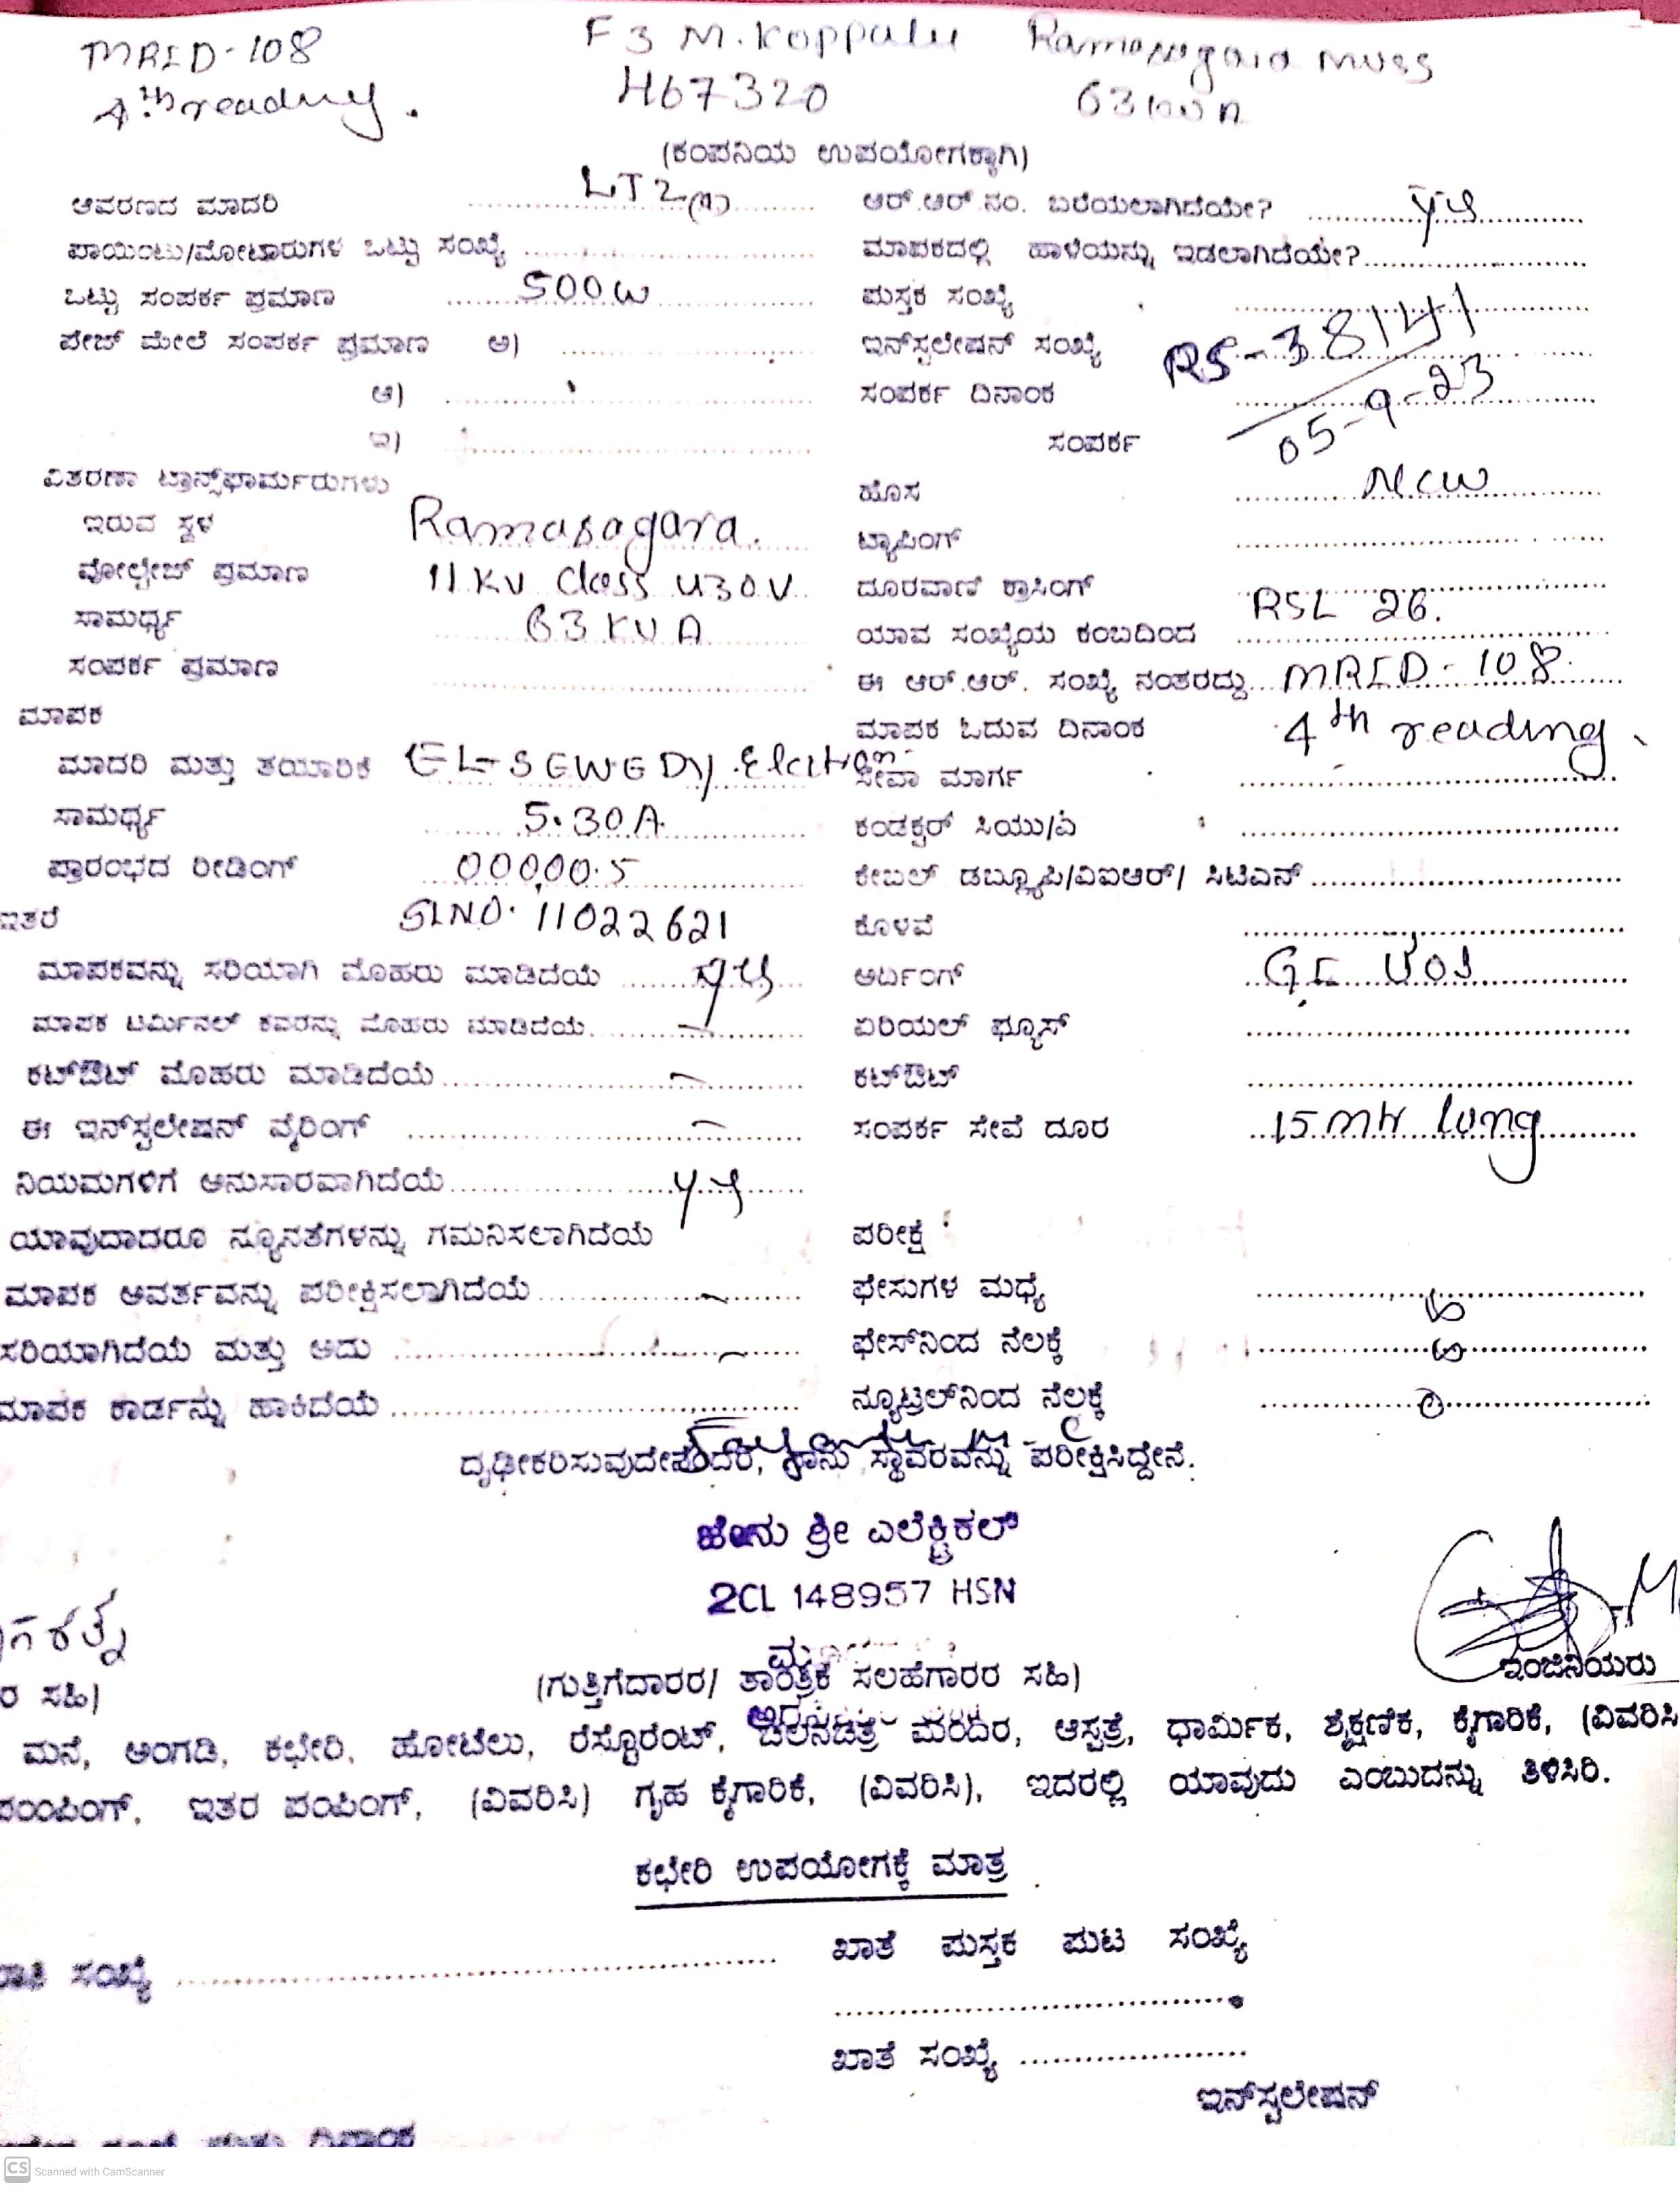 MRID-108 F3 M. Koppalu Ramasagara MUSS
4th reading. 467320 63 KVA
(ಕಂಪನಿಯ ಉಪಯೋಗಕ್ಕಾಗಿ)
ಆವರಣದ ಮಾದರಿ LT2(a) ಆರ್.ಆರ್.ನಂ. ಬರೆಯಲಾಗಿದೆಯೇ? yes
ಪಾಯಿಂಟು/ಮೋಟಾರುಗಳ ಒಟ್ಟು ಸಂಖ್ಯೆ ಮಾಪಕದಲ್ಲಿ ಹಾಳೆಯನ್ನು ಇಡಲಾಗಿದೆಯೇ?
ಒಟ್ಟು ಸಂಪರ್ಕ ಪ್ರಮಾಣ 500W ಪುಸ್ತಕ ಸಂಖ್ಯೆ
ಪೇಜ್ ಮೇಲೆ ಸಂಪರ್ಕ ಪ್ರಮಾಣ ಅ) ಇನ್‌ಸ್ಟಲೇಷನ್ ಸಂಖ್ಯೆ RS-38141
ಆ) ಸಂಪರ್ಕ ದಿನಾಂಕ 05-9-23
ಇ) ಸಂಪರ್ಕ
ವಿತರಣಾ ಟ್ರಾನ್ಸ್‌ಫಾರ್ಮರುಗಳು ಹೊಸ New
ಇರುವ ಸ್ಥಳ Ramasagara. ಟ್ಯಾಪಿಂಗ್
ವೋಲ್ಟೇಜ್ ಪ್ರಮಾಣ 11 KV Class 430V ದೂರವಾಣಿ ಕ್ರಾಸಿಂಗ್
ಸಾಮರ್ಥ್ಯ 63 KVA ಯಾವ ಸಂಖ್ಯೆಯ ಕಂಬದಿಂದ RSL 26.
ಸಂಪರ್ಕ ಪ್ರಮಾಣ ಈ ಆರ್.ಆರ್. ಸಂಖ್ಯೆ ನಂತರದ್ದು MRID-108
ಮಾಪಕ ಮಾಪಕ ಓದುವ ದಿನಾಂಕ 4th reading
ಮಾದರಿ ಮತ್ತು ತಯಾರಿಕೆ EL-SEWEDY ಸೇವಾ ಮಾರ್ಗ
ಸಾಮರ್ಥ್ಯ 5.30A ಕಂಡಕ್ಟರ್ ಸಿಯು/ಎ
ಪ್ರಾರಂಭದ ರೀಡಿಂಗ್ 00000.5 ಕೇಬಲ್ ಡಬ್ಲ್ಯೂಪಿ/ವಿಐಆರ್/ ಸಿಟಿಎನ್
ಇತರೆ SLNO. 11022621 ಕೊಳವೆ
ಮಾಪಕವನ್ನು ಸರಿಯಾಗಿ ಮೊಹರು ಮಾಡಿದೆಯೆ yes ಅರ್ಥಿಂಗ್
ಮಾಪಕ ಟರ್ಮಿನಲ್ ಕವರನ್ನು ಮೊಹರು ಮಾಡಿದೆಯೆ ಏರಿಯಲ್ ಫ್ಯೂಸ್
ಕಟ್‌ಔಟ್ ಮೊಹರು ಮಾಡಿದೆಯೆ ಕಟ್‌ಔಟ್
ಈ ಇನ್‌ಸ್ಟಲೇಷನ್ ವೈರಿಂಗ್ ಸಂಪರ್ಕ ಸೇವೆ ದೂರ 15 mtr long
ನಿಯಮಗಳಿಗೆ ಅನುಸಾರವಾಗಿದೆಯೆ yes
ಯಾವುದಾದರೂ ನ್ಯೂನತೆಗಳನ್ನು ಗಮನಿಸಲಾಗಿದೆಯೆ ಪರೀಕ್ಷೆ
ಮಾಪಕ ಆವರ್ತವನ್ನು ಪರೀಕ್ಷಿಸಲಾಗಿದೆಯೆ ಫೇಸುಗಳ ಮಧ್ಯೆ
ಸರಿಯಾಗಿದೆಯೆ ಮತ್ತು ಅದು ಫೇಸ್‌ನಿಂದ ನೆಲಕ್ಕೆ
ಮಾಪಕ ಕಾರ್ಡನ್ನು ಹಾಕಿದೆಯೆ ನ್ಯೂಟ್ರಲ್‌ನಿಂದ ನೆಲಕ್ಕೆ
ದೃಢೀಕರಿಸುವುದೇನೆಂದರೆ, ನಾನು ಸ್ಥಾವರವನ್ನು ಪರೀಕ್ಷಿಸಿದ್ದೇನೆ.
ಜೇನು ಶ್ರೀ ಎಲೆಕ್ಟ್ರಿಕಲ್
2CL 148957 HSN
ಇಂಜಿನಿಯರು
ರ ಸಹಿ) (ಗುತ್ತಿಗೆದಾರರ/ ತಾಂತ್ರಿಕ ಸಲಹೆಗಾರರ ಸಹಿ)
ಮನೆ, ಅಂಗಡಿ, ಕಛೇರಿ, ಹೋಟೆಲು, ರೆಸ್ಟೊರೆಂಟ್, ಚಲನಚಿತ್ರ ಮಂದಿರ, ಆಸ್ಪತ್ರೆ, ಧಾರ್ಮಿಕ, ಶೈಕ್ಷಣಿಕ, ಕೈಗಾರಿಕೆ, (ವಿವರಿಸಿ
ಪಂಪಿಂಗ್, ಇತರ ಪಂಪಿಂಗ್, (ವಿವರಿಸಿ) ಗೃಹ ಕೈಗಾರಿಕೆ, (ವಿವರಿಸಿ), ಇದರಲ್ಲಿ ಯಾವುದು ಎಂಬುದನ್ನು ತಿಳಿಸಿರಿ.
ಕಛೇರಿ ಉಪಯೋಗಕ್ಕೆ ಮಾತ್ರ
ಸಂಖ್ಯೆ ಖಾತೆ ಪುಸ್ತಕ ಪುಟ ಸಂಖ್ಯೆ
ಖಾತೆ ಸಂಖ್ಯೆ
ಇನ್‌ಸ್ಟಲೇಷನ್
CS Scanned with CamScanner